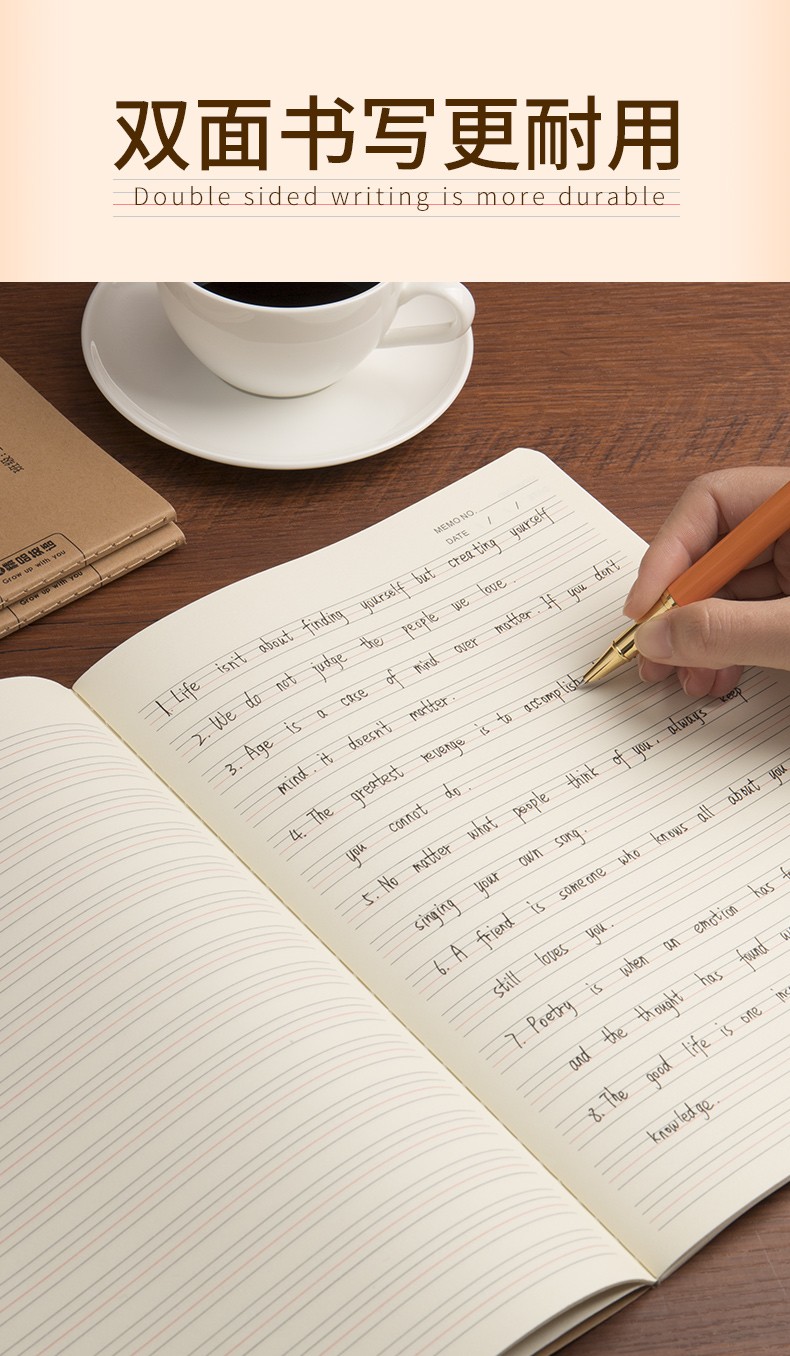 双面书写更耐用
Double sided writing is more durable
MEMO NO.
DATE / /
1. Life isn't about finding yourself but creating yourself
2. We do not judge the people we love.
3. Age is a case of mind over matter. If you don't
mind. it doesn't matter.
4. The greatest revenge is to accomplish
you cannot do.
5. No matter what people think of you, always keep
singing your own song.
6. A friend is someone who knows all about you
still loves you.
7. Poetry is when an emotion has
and the thought has found
8. The good life is one
knowledge.
Grow up with you
Grow up with you